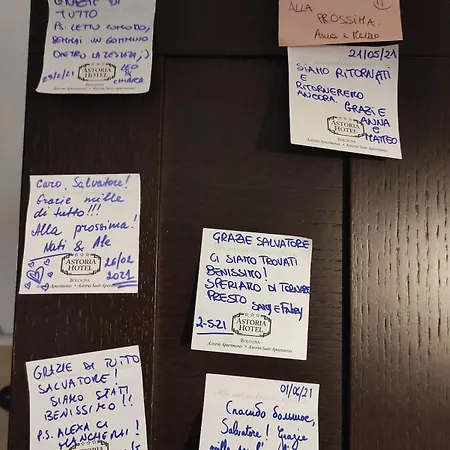 GRAZIE DI
TUTTO
PS: LETTO COMODO,
DIETRO LA TESTATA ;)
LEO
&
CHIARA
ASTORIA
HOTEL
BOLOGNA
ALLA
PROSSIMA.
21/05/21
SIAMO RITORNATI
E
RITORNEREMO
ANCORA.
GRAZIE
ANNA
E
MATTEO
ASTORIA
HOTEL
BOLOGNA
Astoria Apartments • Astoria Suite Apartments
Caro, Salvatore!
Grazie mille
di tutto!!!
Alla prossima!
Nati & Ale
26/02
2021
ASTORIA
HOTEL
BOLOGNA
Astoria Apartments • Astoria Suite Apartments
GRAZIE SALVATORE
CI SIAMO TROVATI
BENISSIMO!
SPERIAMO DI TORNARE
PRESTO
2-5-21
ASTORIA
HOTEL
BOLOGNA
Astoria Apartments • Astoria Suite Apartments
GRAZIE DI TUTTO
SALVATORE!
SIAMO STATI
BENISSIMO!!
P.S. ALEXA CI
MANCHERAI!
ASTORIA
HOTEL
01/06/21
Спасибо большое,
Salvatore! Grazie
mille